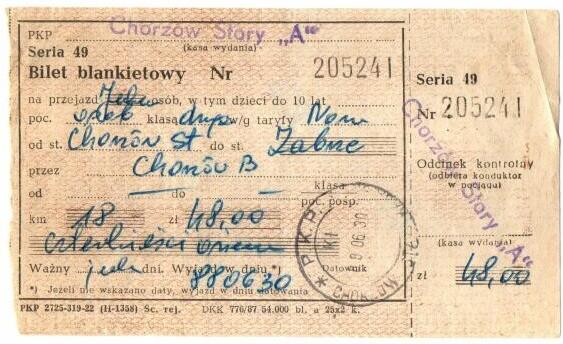 PKP Chorzów Stary „A"
(kasa wydania)
Seria 49
Bilet blankietowy Nr 205241
na przejazd Jedna osób, w tym dzieci do 10 lat
poc. osob klasa druga w/g taryfy Norm
od st. Chorzów St do st. Zabrze
przez Chorzów B
od — do — klasa
poc. posp.
km 18 zł 48,00
czterdzieści osiem
Ważny jeden dni. Wyjazd w dniu *) 880630
Datownik
*) Jeżeli nie wskazano daty, wyjazd w dniu datowania
PKP 2725-319-22 (H-1358) Sc. rej. DKK 776/87 54.000 bl. a 25x2 k.
* P.K.P.
Seria 49
Nr 205241
Chorzów Stary „A"
Odcinek kontrolny
(odbiera konduktor
w pociągu)
(kasa wydania)
zł 48,00